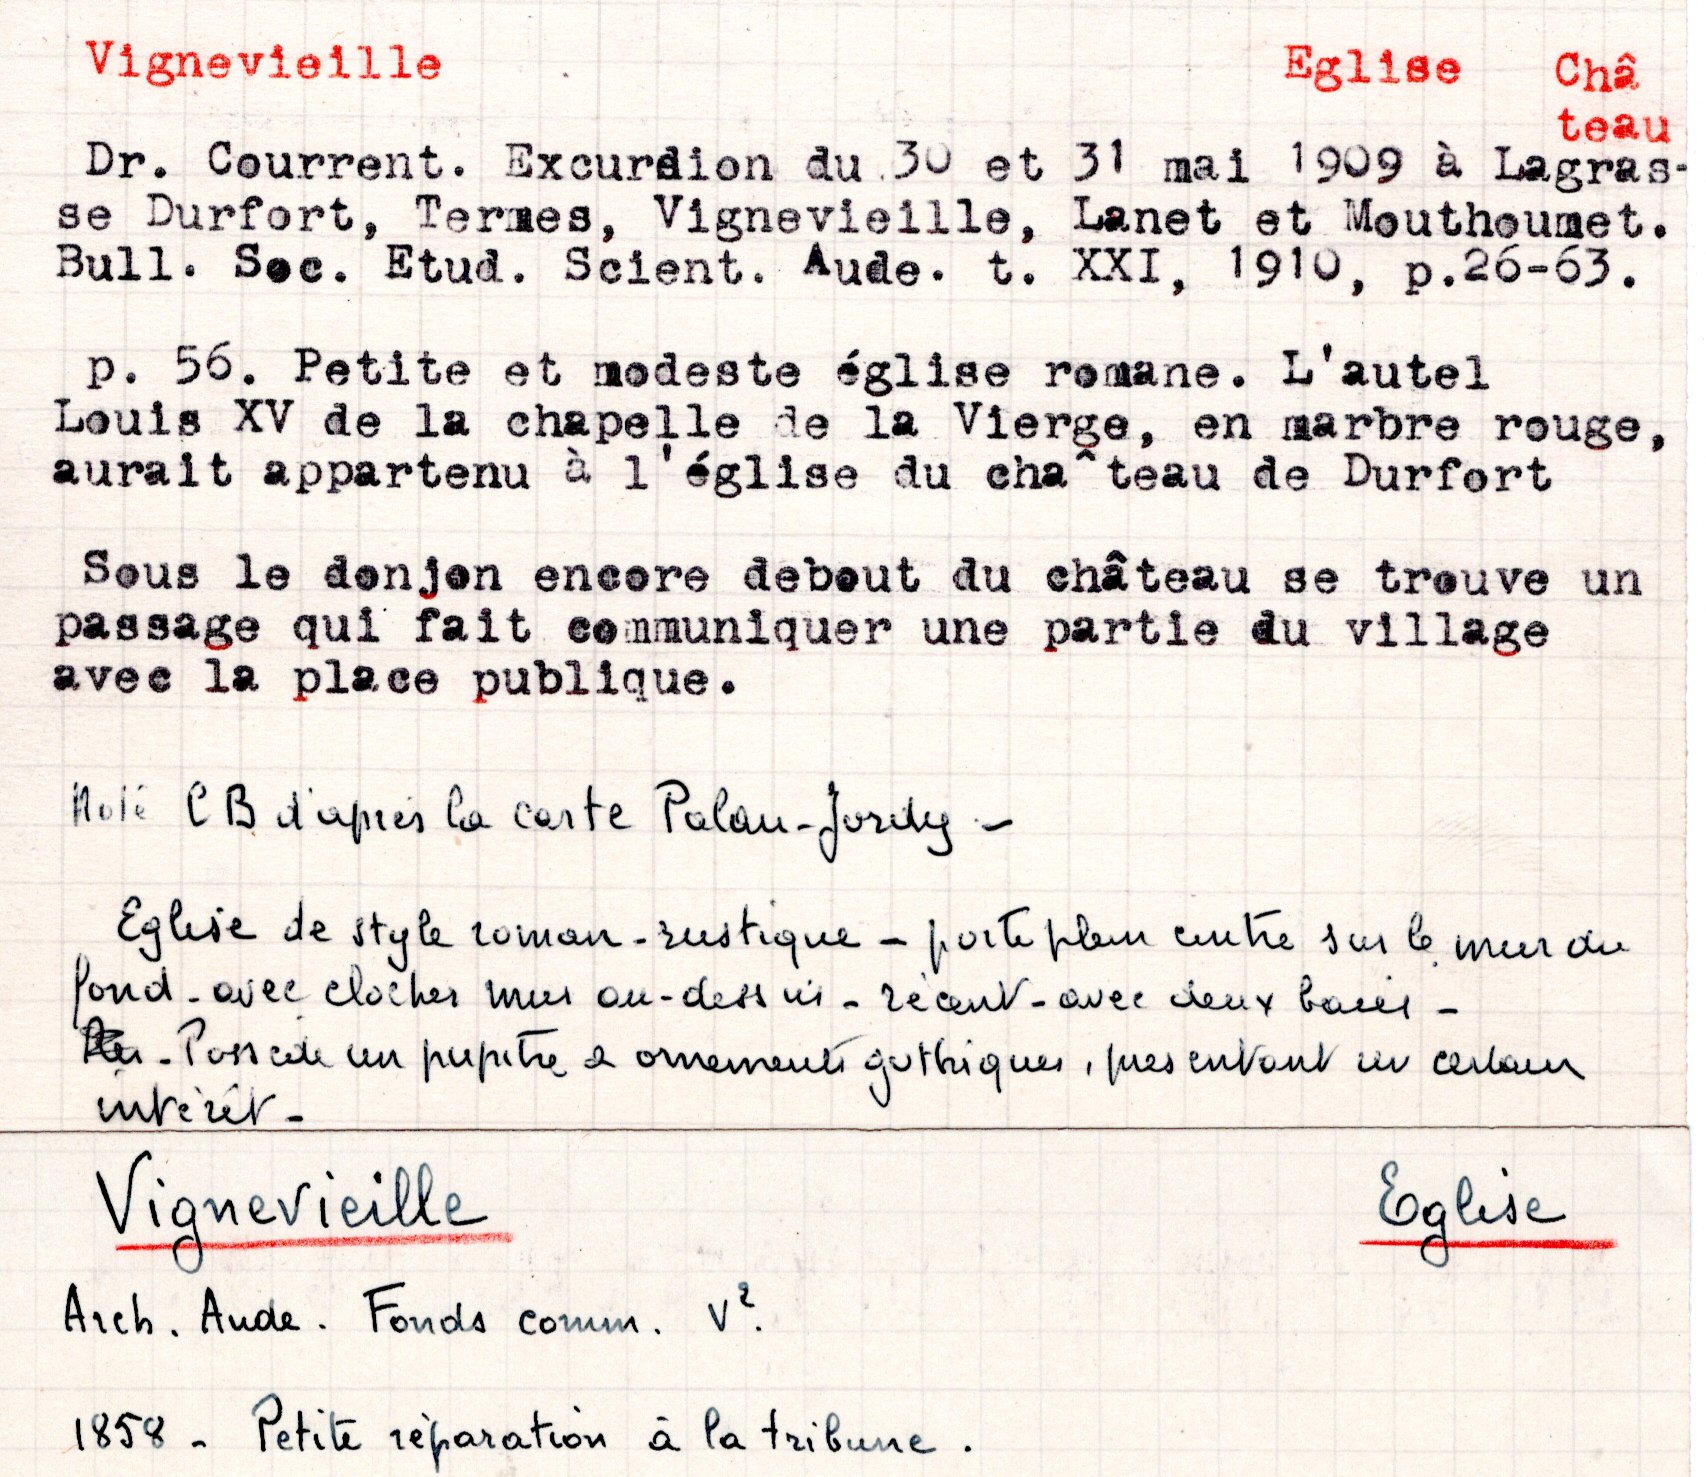 Vignevieille Eglise Châ
teau
Dr. Courrent. Excursion du 30 et 31 mai 1909 à Lagras-
se Durfort, Termes, Vignevieille, Lanet et Mouthoumet.
Bull. Soc. Etud. Scient. Aude. t. XXI, 1910, p.26-63.
p. 56. Petite et modeste église romane. L'autel
Louis XV de la chapelle de la Vierge, en marbre rouge,
aurait appartenu à l'église du château de Durfort
Sous le donjon encore debout du château se trouve un
passage qui fait communiquer une partie du village
avec la place publique.
Noté CB d'après la carte Palau-Jordy -
Eglise de style roman-rustique - porte plein cintre sur le mur du
fond - avec clocher mur au-dessus - récent - avec deux baies -
- Possède un pupitre à ornements gothiques, présentant un certain
intérêt -
Vignevieille Eglise
Arch. Aude. Fonds comm. V².
1858 - Petite réparation à la tribune.